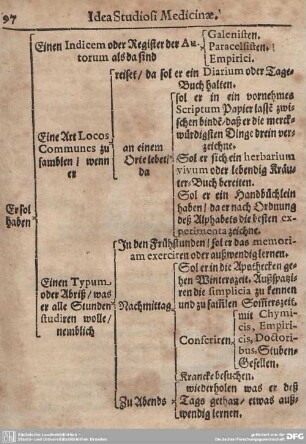 97 Idea Studiosi Medicinæ.
Er sol
haben
Einen Indicem oder Register der Au-
torum als da sind
Galenisten.
Paracelsisten.
Empirici.
Eine Art Locos
Communes zu
samblen / wenn
er
reiset / da sol er ein Diarium oder Tage-
Buch halten.
an einem
Orte lebet /
da
sol er in ein vornehmes
Scriptum Papier lassē zwi-
schen bindē / daß er die merck-
würdigsten Dinge drein ver-
zeichne.
Sol er sich ein herbarium
vivum oder lebendig Kräu-
ter-Buch bereiten.
Sol er ein Handbüchlein
haben / da er nach Ordnung
deß Alphabets die besten ex-
perimenta zeichne.
Einen Typum
oder Abriß / was
er alle Stunden
studiren wolle /
nemblich
In den Frühstunden / sol er das memori-
am exerciren oder außwendig lernen.
Nachmittag
Sol er in die Apothecken ge-
hen Winterszeit, Außspatzi-
ren die simplicia zu kennen
und zu sam̄len Som̄erszeit.
Conferiren
mit Chymi-
cis, Empiri-
cis, Doctori-
bus, Stuben-
Gesellen.
Krancke besuchen.
Zu Abends
wiederholen was er deß
Tags gethan / etwas auß-
wendig lernen.
Sächsische Landesbibliothek -
Staats- und Universitätsbibliothek Dresden
gefördert von der
Deutschen Forschungsgemeinschaft
DFG